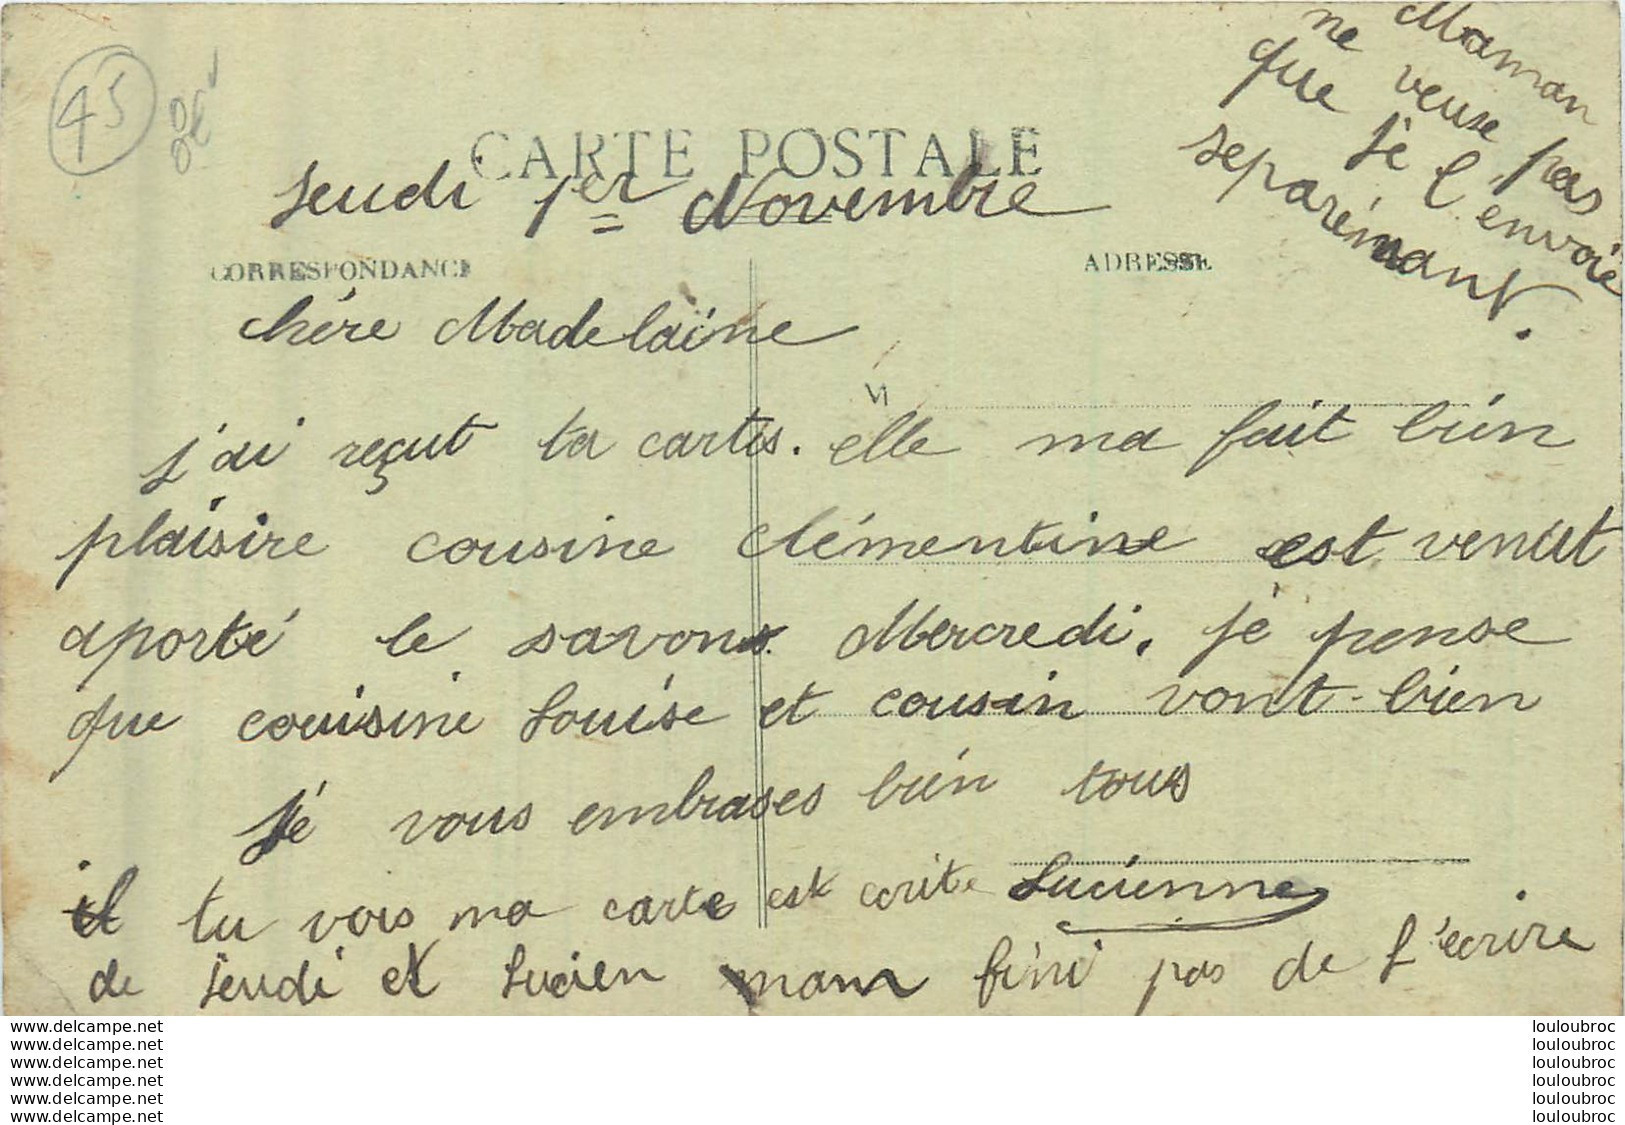 Maman
ne veuse pas
que je l'envoie
séparémant.
45
CARTE POSTALE
Jeudi 1er Novembre
CORRESPONDANCE
ADRESSE
chére Madelaine
j'ai reçut ta cartes. elle ma fait bien
plaisire cousine Clémentine est venut
aporté le savons Mercredi. je pense
que couisine Louise et cousin vont bien
Je vous embrases bien tous
il tu vois ma carte est ecrite Lucienne
de jeudi et Lucien nam fini pas de l'ecrire
www.delcampe.net
www.delcampe.net
www.delcampe.net
www.delcampe.net
www.delcampe.net
www.delcampe.net
louloubroc
louloubroc
louloubroc
louloubroc
louloubroc
louloubroc